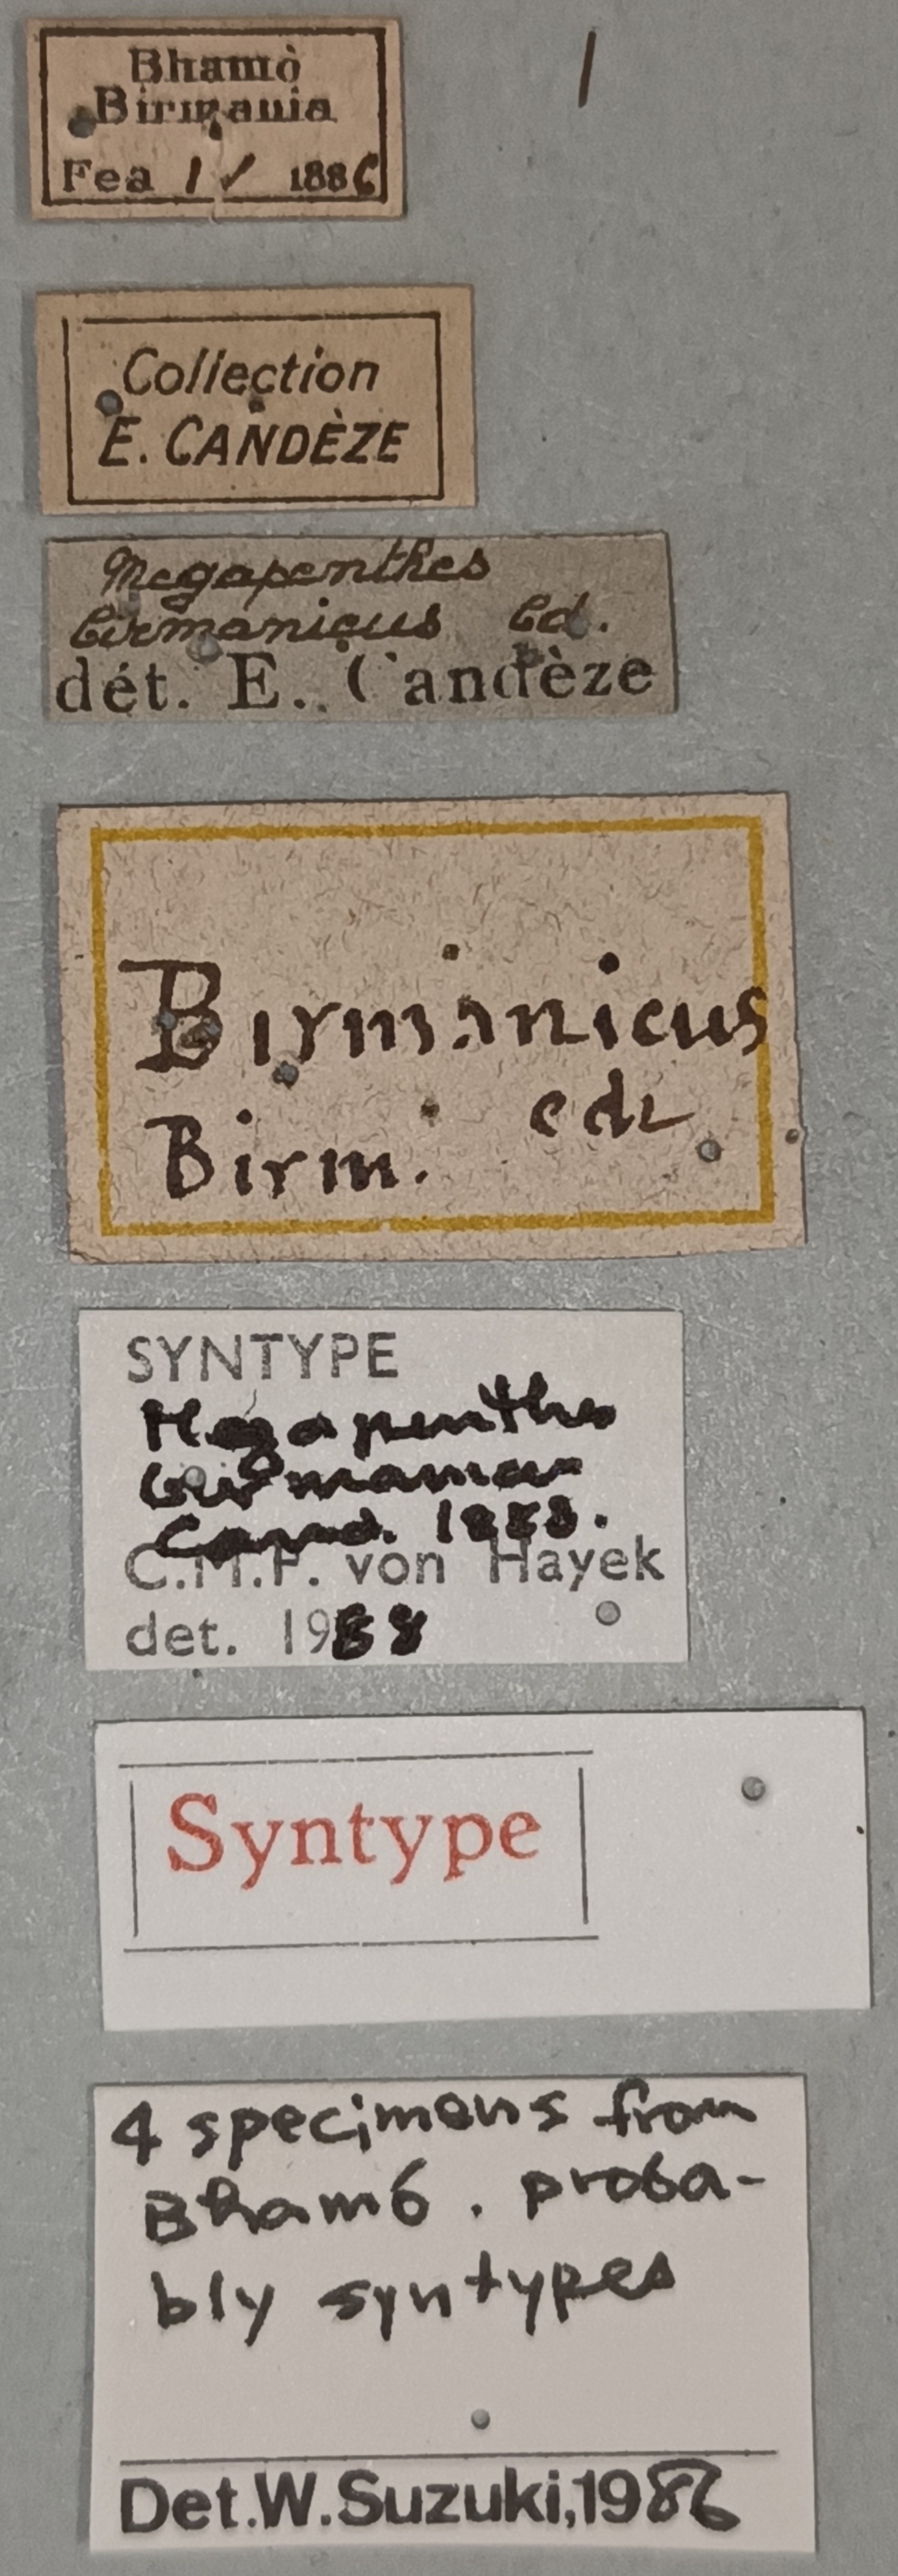 Bhamò
Birmania
Fea 1886
Collection
E. CANDÈZE
Megapenthes
birmanicus Cd.
dét. E. Candèze
Birmanicus
cdz
Birm.
SYNTYPE
Megapenthes
birmanicus
Cand. 1888.
C.M.F. von Hayek
det. 1988
Syntype
4 specimens from
Bhamó. proba-
bly syntypes
Det.W.Suzuki,1986